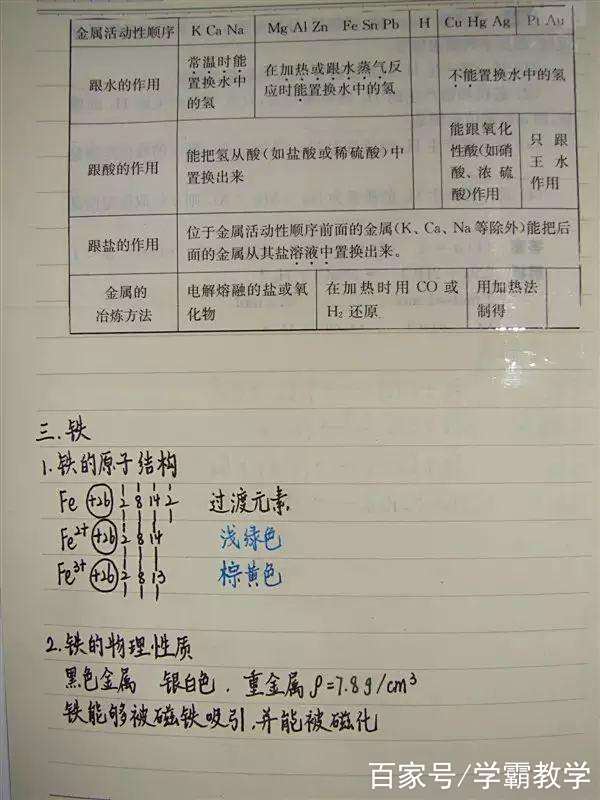 金属活动性顺序 K Ca Na Mg Al Zn Fe Sn Pb H Cu Hg Ag Pt Au
跟水的作用
常温时能
置换水中
的氢
在加热或跟水蒸气反
应时能置换水中的氢
不能置换水中的氢
跟酸的作用
能把氢从酸(如盐酸或稀硫酸)中
置换出来
能跟氧化
性酸(如硝
酸、浓硫
酸)作用
只跟
王水
作用
跟盐的作用
位于金属活动性顺序前面的金属(K、Ca、Na等除外)能把后
面的金属从其盐溶液中置换出来。
金属的
冶炼方法
电解熔融的盐或氧
化物
在加热时用 CO 或
H₂ 还原
用加热法
制得
三.铁
1.铁的原子结构
Fe +26 2 8 14 2 过渡元素.
Fe²⁺ +26 2 8 14 浅绿色
Fe³⁺ +26 2 8 13 棕黄色
2.铁的物理性质
黑色金属 银白色. 重金属 ρ=7.8g/cm³
铁能够被磁铁吸引.并能被磁化
百家号/学霸教学